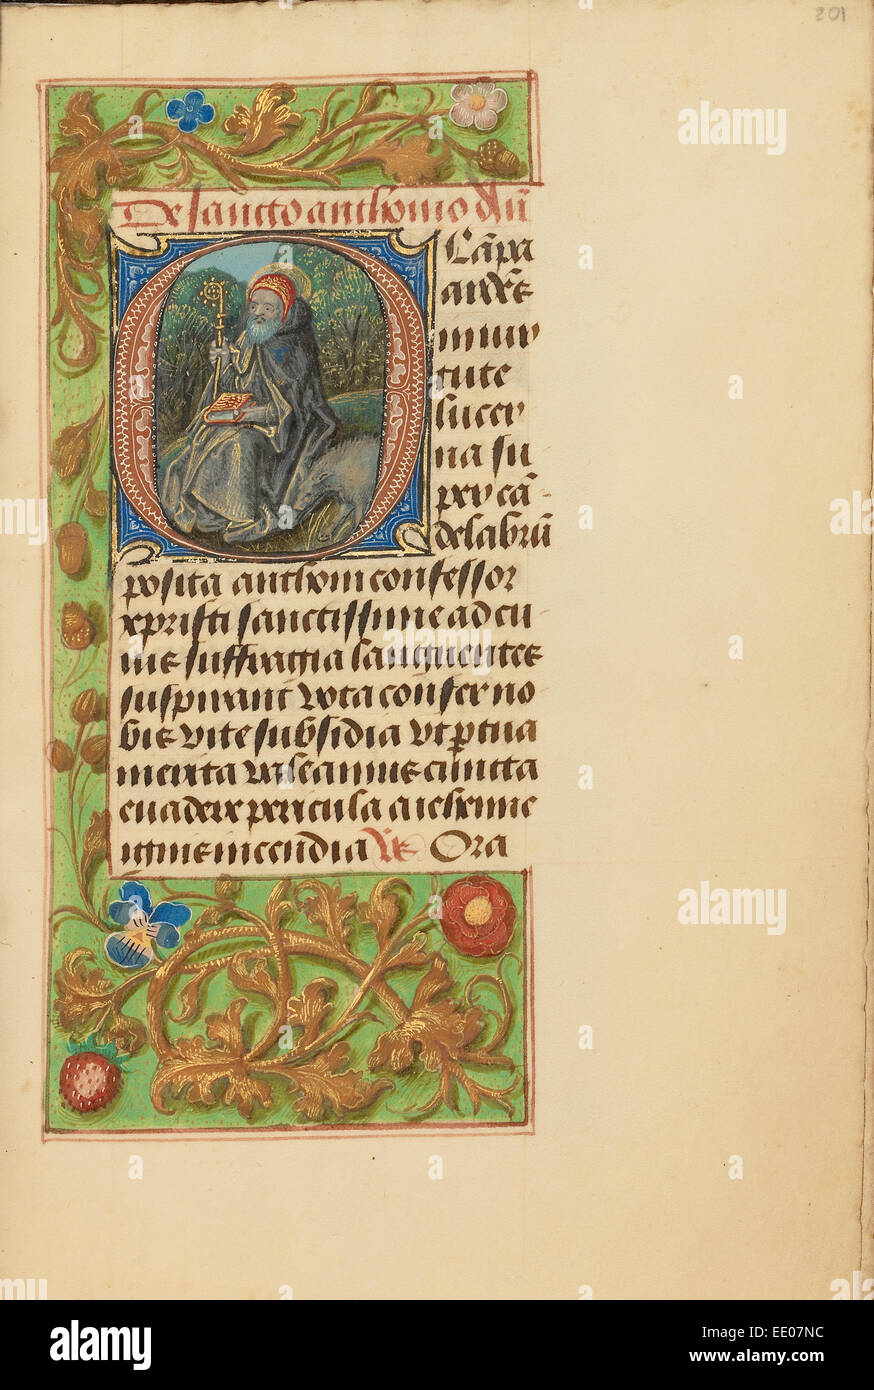 201
De sancto anthonio
O Lãpa
ardẽs
in uir
tute
lucer
na su
per cã
delabrũ
posita anthoni confessor
xpristi sanctissime ad cu
ius suffragia languentes
suspirant vota confer no
bis vite subsidia vt ꝑ tua
merita valeamus cuncta
euadere pericula
ignis incendia Ora
alamy
alamy
alamy
alamy
a
a
a
a
a
a
a
a
alamy
Image ID: EE07NC
www.alamy.com